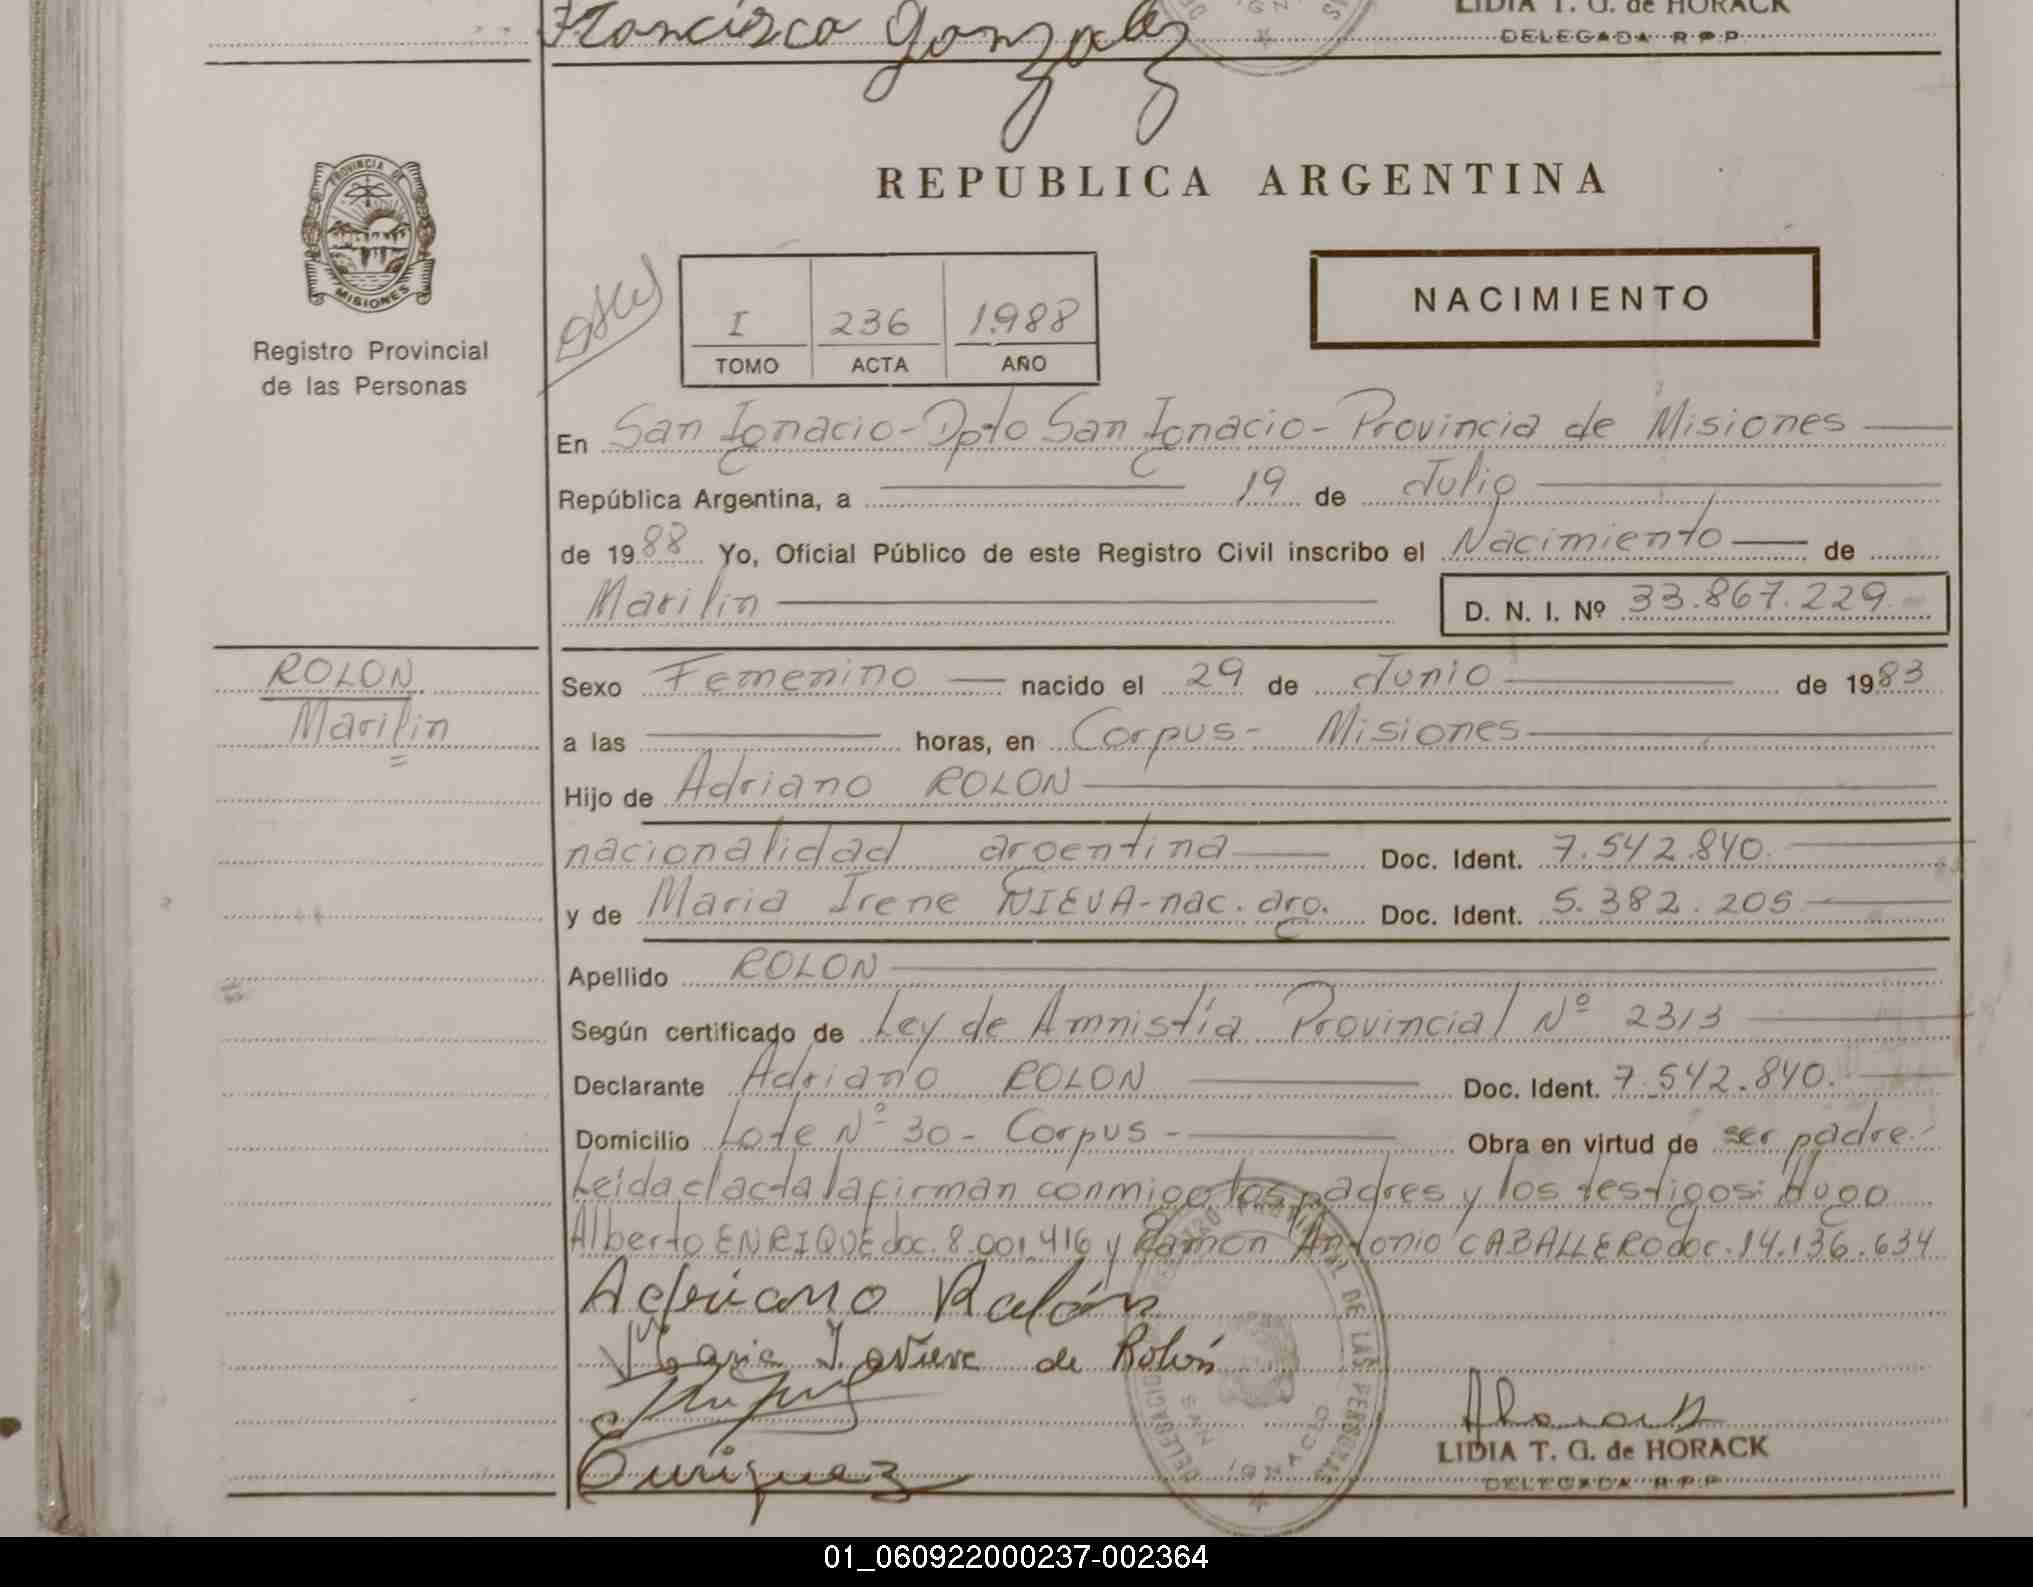 Francisca Gonzalez
LIDIA T. G. de HORACK
DELEGADA R.P.P.
PROVINCIA DE
MISIONES
Registro Provincial
de las Personas
REPUBLICA ARGENTINA
NACIMIENTO
I 236 1.988
TOMO ACTA AÑO
En San Ignacio - Dpto San Ignacio - Provincia de Misiones
República Argentina, a 19 de Julio
de 1988 Yo, Oficial Público de este Registro Civil inscribo el Nacimiento de
Marilin D. N. I. Nº 33.867.229.-
ROLON
Marilin
Sexo Femenino nacido el 29 de Junio de 1983
a las horas, en Corpus - Misiones
Hijo de Adriano ROLON
nacionalidad argentina Doc. Ident. 7.542.840.
y de Maria Irene NIEVA - nac. arg. Doc. Ident. 5.382.205
Apellido ROLON
Según certificado de Ley de Amnistía Provincial Nº 2313
Declarante Adriano ROLON Doc. Ident. 7.542.840.
Domicilio Lote Nº 30 - Corpus - Obra en virtud de ser padre.-
Leida el acta la firman conmigo los padres y los testigos: Hugo
Alberto ENRIQUE doc. 8.001.416 y Ramon Antonio CABALLERO doc. 14.136.634
Adriano Rolón
Maria I. de Rolón
LIDIA T. G. de HORACK
DELEGADA R.P.P.
DE LAS PERSONAS
SAN IGNACIO
01_060922000237-002364